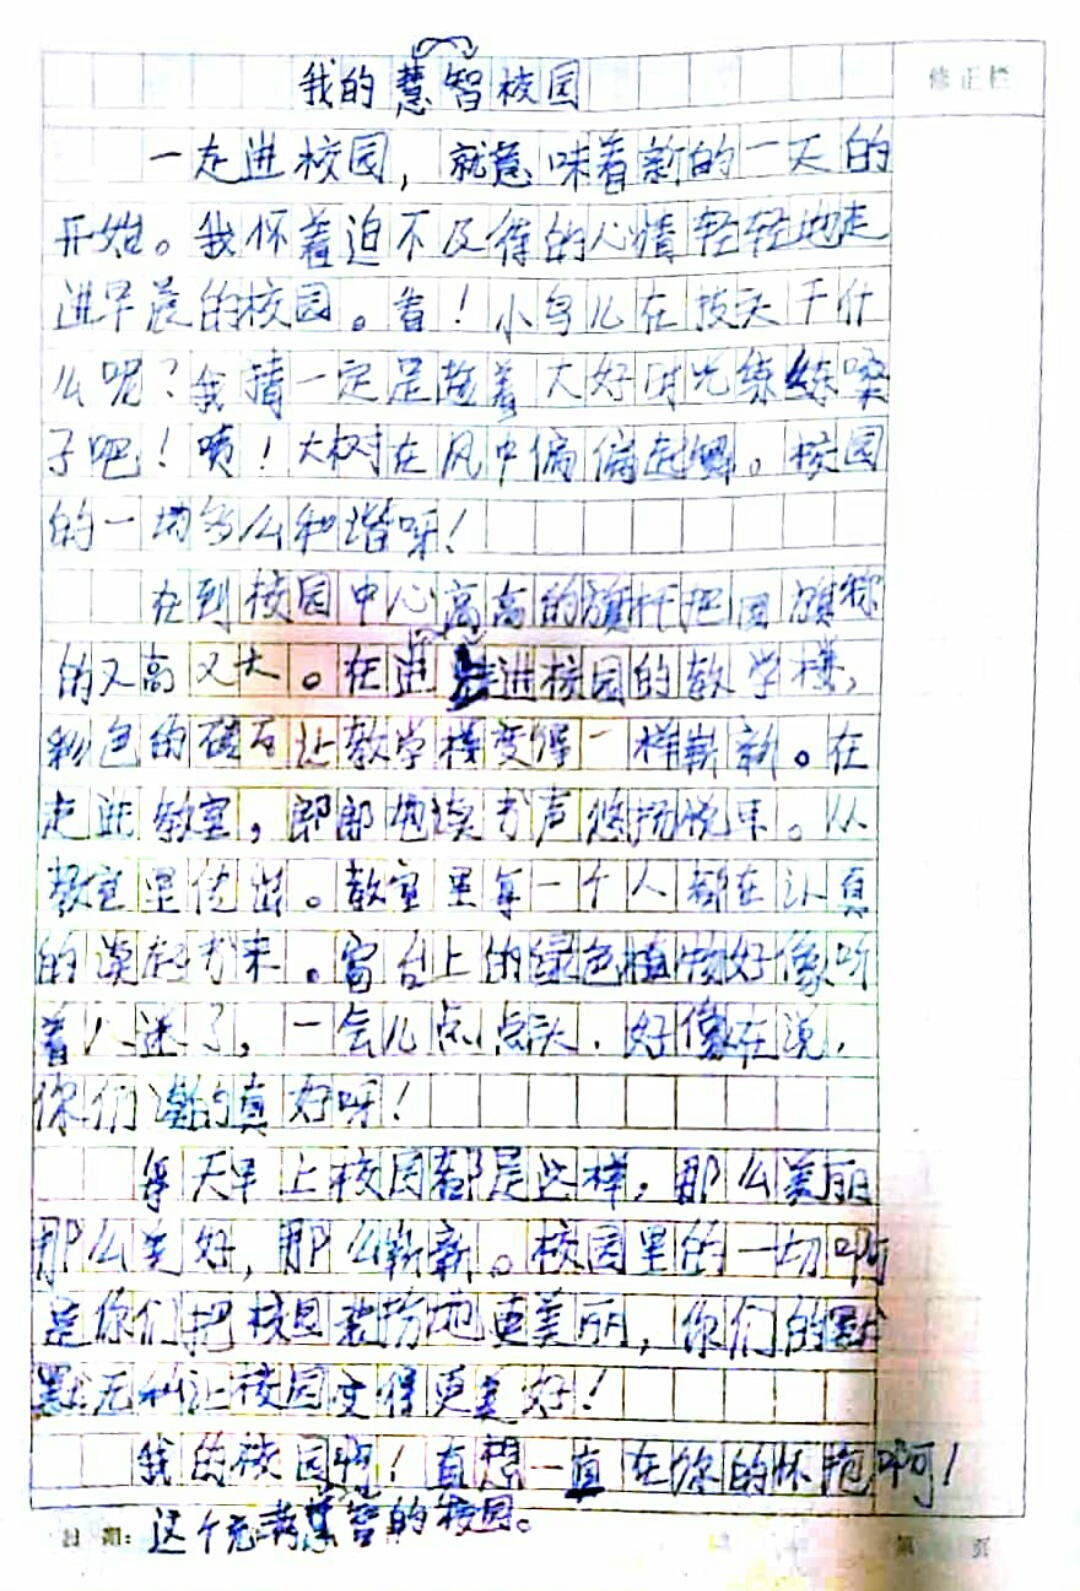 我的慧智校园
修正栏
一走进校园，就意味着新的一天的
开始。我怀着迫不及待的心情轻轻地走
进早晨的校园。看！小鸟儿在技头干什
么呢？我猜一定是趁着大好时光练练嗓
子吧！咦！大树在风中偏偏起舞。校园
的一切多么和谐呀！
在到校园中心高高的旗杆把国旗称
的又高又大。在进走进校园的教学楼，
彩色的磁石让教学楼变得一样崭新。在
走进教室，郎郎地读书声悠扬悦耳。从
教室里传出。教室里每一个人都在认真
的读起书来。窗台上的绿色植物好像听
着入迷了，一会儿点点头.好像在说，
你们读的真好呀！
每天早上校园都是这样，那么美丽
那么美好，那么崭新。校园里的一切啊
是你们把校园装扮地更美丽，你们的默
默无私让校园变得更美好！
我的校园啊！真想一直在你的怀抱啊！
这个充满慧智的校园。
日期：
第 页